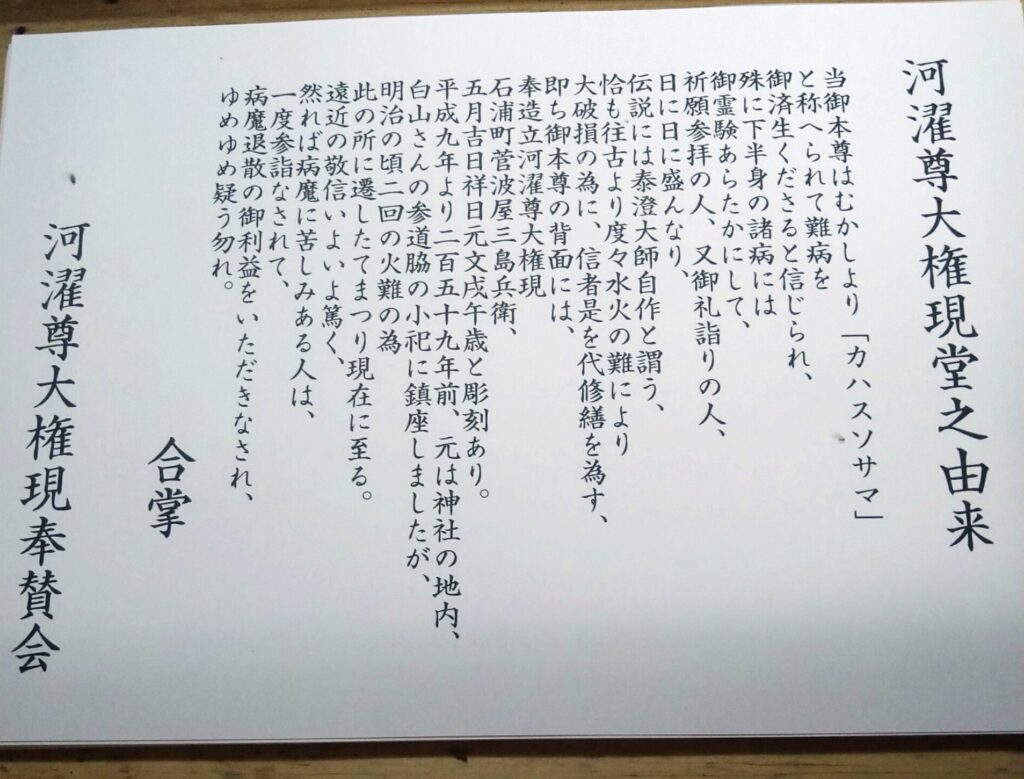 河濯尊大権現堂之由来
当御本尊はむかしより「カハスソサマ」
と称へられて難病を
御済生くださると信じられ、
殊に下半身の諸病には
御霊験あらたかにして、
祈願参拝の人、又御礼詣りの人、
日に日に盛んなり、
伝説には泰澄大師自作と謂う、
恰も往古より度々水火の難により
大破損の為に、信者是を代修繕を為す、
即ち御本尊の背面には、
奉造立河濯尊大権現
石浦町菅波屋三島兵衛、
五月吉日祥日元文戌午歳と彫刻あり。
平成九年より二百五十九年前、元は神社の地内、
白山さんの参道脇の小祀に鎮座しましたが、
明治の頃二回の火難の為
此の所に遷したてまつり現在に至る。
遠近の敬信いよいよ篤く、
然れば病魔に苦しみある人は、
一度参詣なされて、
病魔退散の御利益をいただきなされ、
ゆめゆめ疑う勿れ。
合掌
河濯尊大権現奉賛会